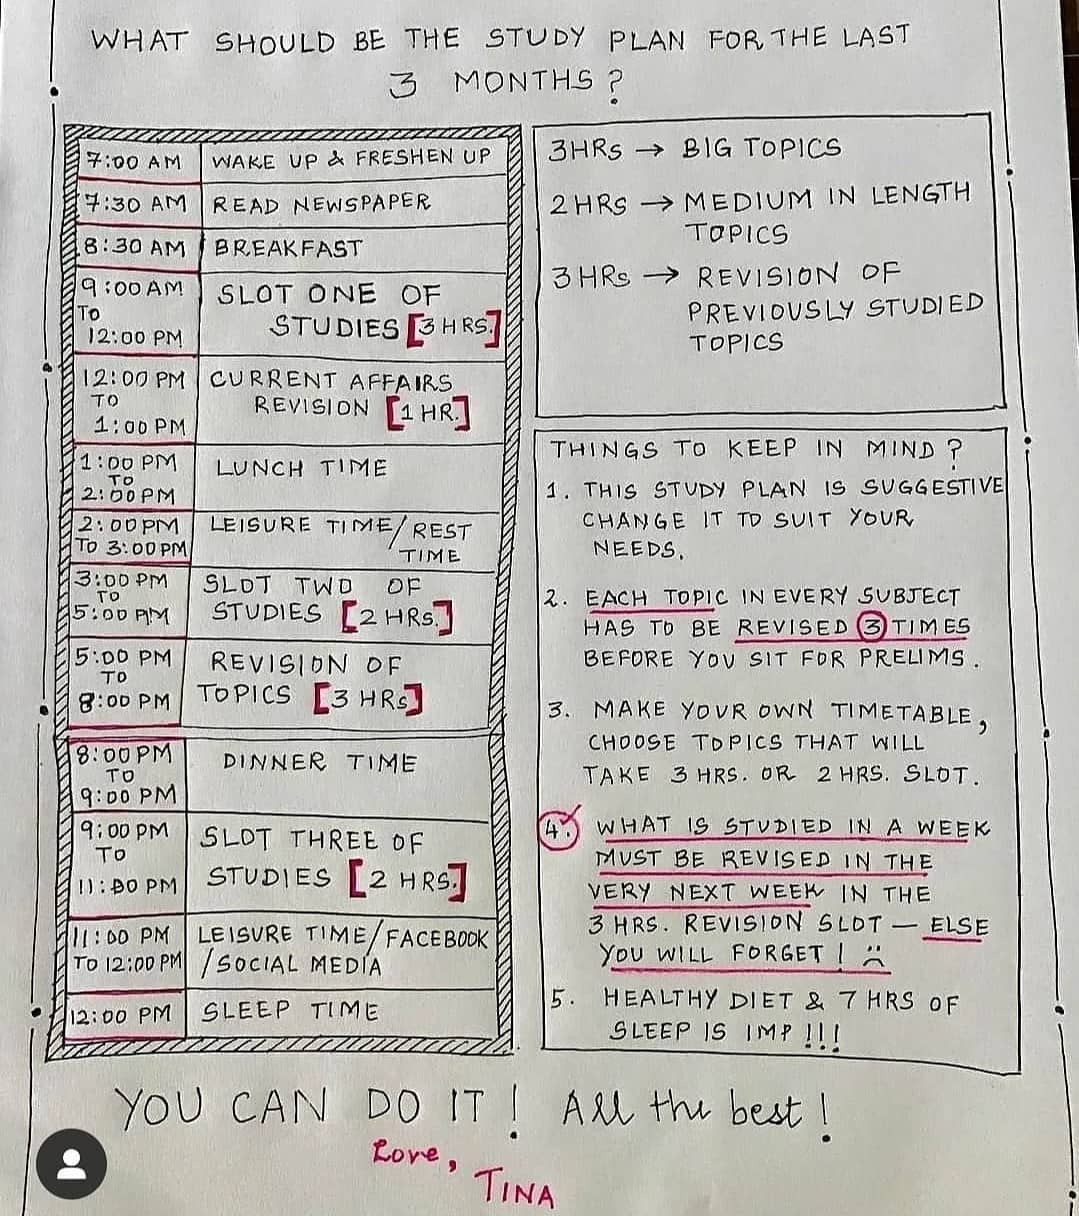 WHAT SHOULD BE THE STUDY PLAN FOR THE LAST
3 MONTHS?
7:00 AM WAKE UP & FRESHEN UP
7:30 AM READ NEWSPAPER
8:30 AM BREAKFAST
9:00 AM
TO
12:00 PM
SLOT ONE OF
STUDIES [3 HRS.]
12:00 PM
TO
1:00 PM
CURRENT AFFAIRS
REVISION [1 HR.]
1:00 PM
TO
2:00 PM
LUNCH TIME
2:00 PM
TO 3:00 PM
LEISURE TIME/REST
TIME
3:00 PM
TO
5:00 PM
SLOT TWO OF
STUDIES [2 HRS.]
5:00 PM
TO
8:00 PM
REVISION OF
TOPICS [3 HRS]
8:00 PM
TO
9:00 PM
DINNER TIME
9:00 PM
TO
11:00 PM
SLOT THREE OF
STUDIES [2 HRS.]
11:00 PM
TO 12:00 PM
LEISURE TIME/FACEBOOK
/SOCIAL MEDIA
12:00 PM SLEEP TIME
3HRS → BIG TOPICS
2HRS → MEDIUM IN LENGTH
TOPICS
3HRS → REVISION OF
PREVIOUSLY STUDIED
TOPICS
THINGS TO KEEP IN MIND?
1. THIS STUDY PLAN IS SUGGESTIVE
CHANGE IT TO SUIT YOUR
NEEDS.
2. EACH TOPIC IN EVERY SUBJECT
HAS TO BE REVISED 3 TIMES
BEFORE YOU SIT FOR PRELIMS.
3. MAKE YOUR OWN TIMETABLE,
CHOOSE TOPICS THAT WILL
TAKE 3 HRS. OR 2 HRS. SLOT.
4. WHAT IS STUDIED IN A WEEK
MUST BE REVISED IN THE
VERY NEXT WEEK IN THE
3 HRS. REVISION SLOT — ELSE
YOU WILL FORGET!
5. HEALTHY DIET & 7 HRS OF
SLEEP IS IMP!!!
YOU CAN DO IT! All the best!
Love,
TINA